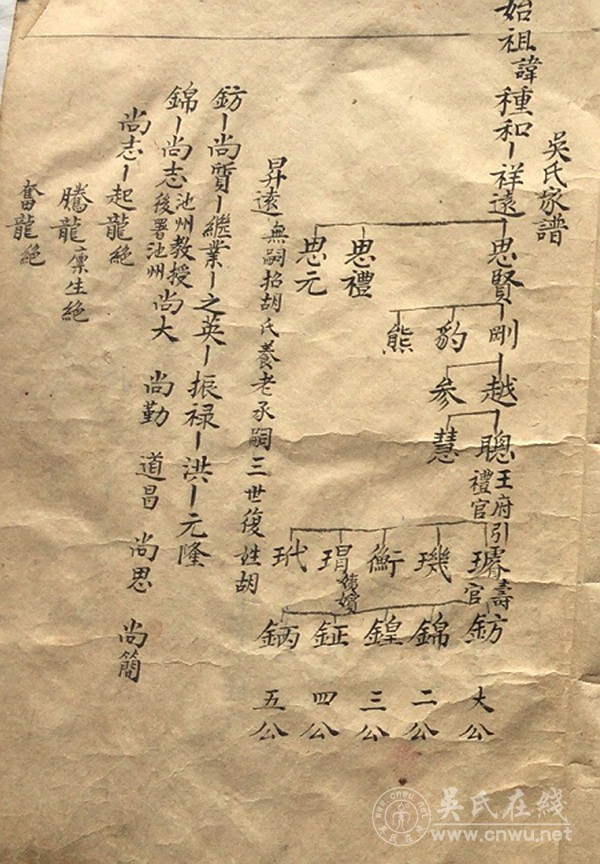 吳氏家譜
始祖諱種和-祥遠-思賢 思禮 思元
剛 豹 熊
越 参
聰 王府引禮官 慧
璿 壽官 璣 衡 瑁 玳
鈁 錦 鍠 鉦 鈵
大公 二公 三公 四公 五公
昇遠 無嗣招胡氏養老承嗣三世復姓胡
鈁-尚質-繼業-之英-振禄-洪-元隆
錦-尚志 池州教授後署池州 尚大 尚勤 道昌 尚思 尚簡
尚志-起龍 絶
騰龍 廪生絶
奮龍 絶
吴氏在线
www.cnwu.net